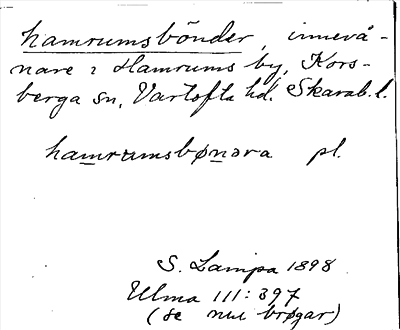 hamrumsbönder, innevå-
nare i Hamrums by, Kors-
berga sn, Vartofta hd. Skarab. l.
hamrumsbønəra pl.
S. Lampa 1898
Ulma 111:397
(se nul brøgar)